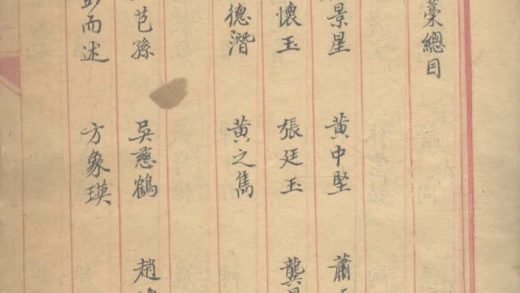 稾總目
景星 黄中堅 蕭
懷玉 張廷玉 龔
德潛 黄之雋
芑孫 吳慈鶴 趙
彭而述 方象瑛